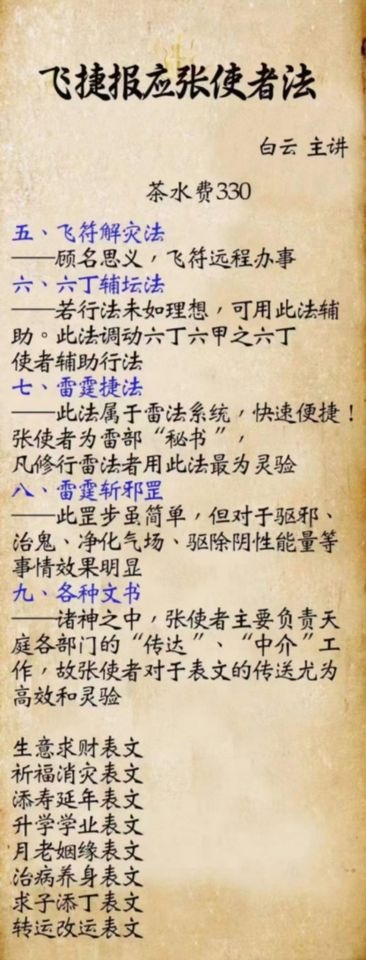 飞捷报应张使者法
白云 主讲
茶水费330
五、飞符解灾法
——顾名思义，飞符远程办事
六、六丁辅坛法
——若行法未如理想，可用此法辅
助。此法调动六丁六甲之六丁
使者辅助行法
七、雷霆捷法
——此法属于雷法系统，快速便捷！
张使者为雷部“秘书”，
凡修行雷法者用此法最为灵验
八、雷霆斩邪罡
——此罡步虽简单，但对于驱邪、
治鬼、净化气场、驱除阴性能量等
事情效果明显
九、各种文书
——诸神之中，张使者主要负责天
庭各部门的“传达”、“中介”工
作，故张使者对于表文的传送尤为
高效和灵验
生意求财表文
祈福消灾表文
添寿延年表文
升学学业表文
月老姻缘表文
治病养身表文
求子添丁表文
转运改运表文